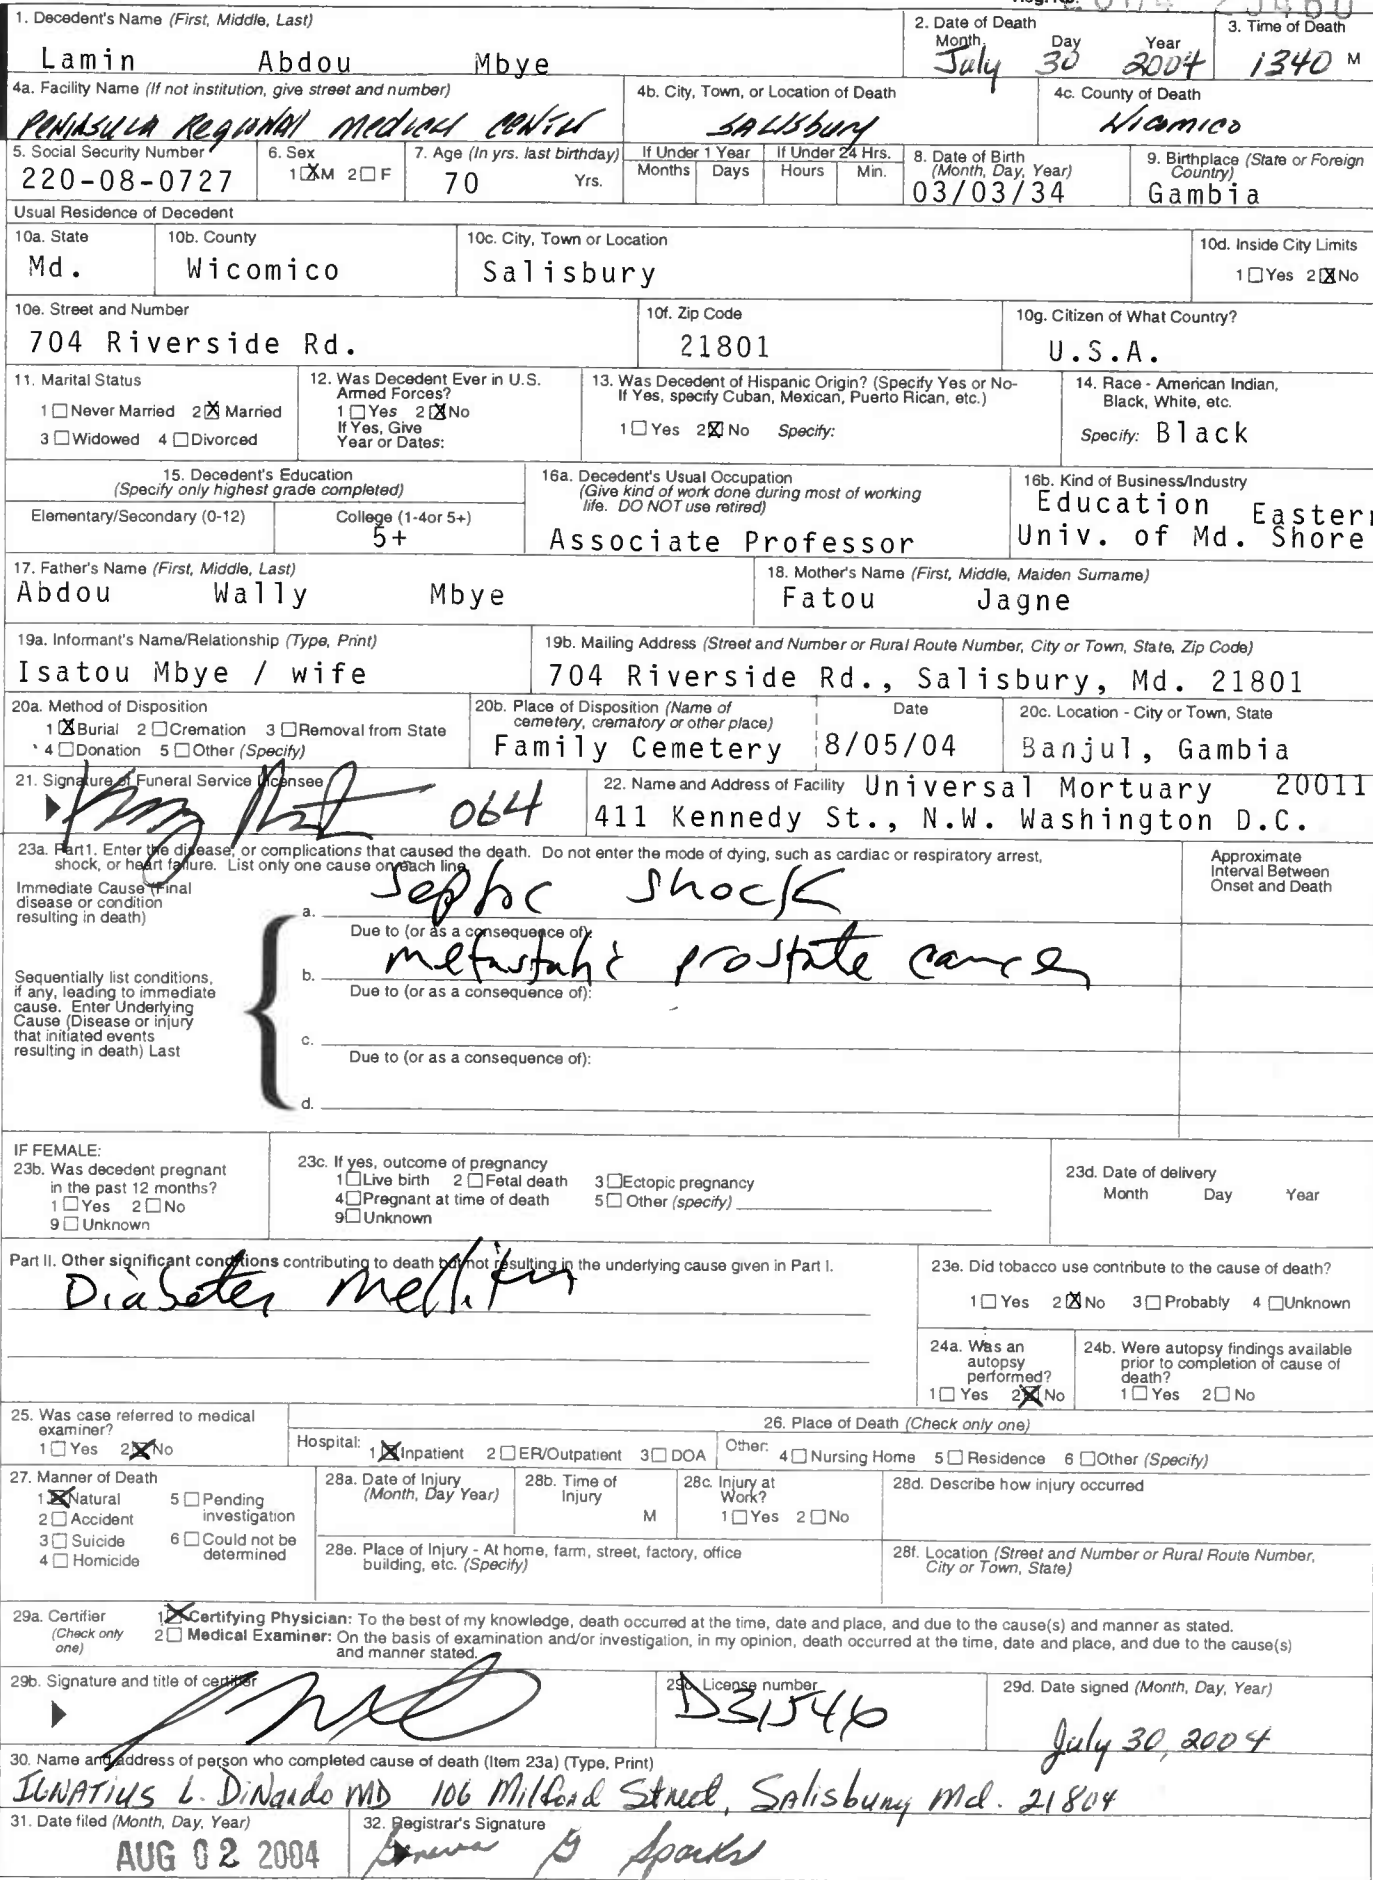 1. Decedent's Name (First, Middle, Last)
Lamin Abdou Mbye
2. Date of Death
Month Day Year
July 30 2004
3. Time of Death
1340 M
4a. Facility Name (If not institution, give street and number)
PENINSULA REGIONAL MEDICAL CENTER
4b. City, Town, or Location of Death
SALISBURY
4c. County of Death
WICOMICO
5. Social Security Number
220-08-0727
6. Sex
1 X M 2 F
7. Age (In yrs. last birthday)
70 Yrs.
If Under 1 Year
Months Days
If Under 24 Hrs.
Hours Min.
8. Date of Birth
(Month, Day, Year)
03/03/34
9. Birthplace (State or Foreign
Country)
Gambia
Usual Residence of Decedent
10a. State
Md.
10b. County
Wicomico
10c. City, Town or Location
Salisbury
10d. Inside City Limits
1 Yes 2 X No
10e. Street and Number
704 Riverside Rd.
10f. Zip Code
21801
10g. Citizen of What Country?
U.S.A.
11. Marital Status
1 Never Married 2 X Married
3 Widowed 4 Divorced
12. Was Decedent Ever in U.S.
Armed Forces?
1 Yes 2 X No
If Yes, Give
Year or Dates:
13. Was Decedent of Hispanic Origin? (Specify Yes or No-
If Yes, specify Cuban, Mexican, Puerto Rican, etc.)
1 Yes 2 X No Specify:
14. Race - American Indian,
Black, White, etc.
Specify: Black
15. Decedent's Education
(Specify only highest grade completed)
Elementary/Secondary (0-12)
College (1-4or 5+)
5+
16a. Decedent's Usual Occupation
(Give kind of work done during most of working
life. DO NOT use retired)
Associate Professor
16b. Kind of Business/Industry
Education Eastern
Univ. of Md. Shore
17. Father's Name (First, Middle, Last)
Abdou Wally Mbye
18. Mother's Name (First, Middle, Maiden Surname)
Fatou Jagne
19a. Informant's Name/Relationship (Type, Print)
Isatou Mbye / wife
19b. Mailing Address (Street and Number or Rural Route Number, City or Town, State, Zip Code)
704 Riverside Rd., Salisbury, Md. 21801
20a. Method of Disposition
1 X Burial 2 Cremation 3 Removal from State
4 Donation 5 Other (Specify)
20b. Place of Disposition (Name of
cemetery, crematory or other place)
Family Cemetery
Date
8/05/04
20c. Location - City or Town, State
Banjul, Gambia
21. Signature of Funeral Service Licensee
064
22. Name and Address of Facility Universal Mortuary 20011
411 Kennedy St., N.W. Washington D.C.
23a. Part1. Enter the disease, or complications that caused the death. Do not enter the mode of dying, such as cardiac or respiratory arrest,
shock, or heart failure. List only one cause on each line.
Approximate
Interval Between
Onset and Death
Immediate Cause (Final
disease or condition
resulting in death)
a. Septic shock
Due to (or as a consequence of):
Sequentially list conditions,
if any, leading to immediate
cause. Enter Underlying
Cause (Disease or injury
that initiated events
resulting in death) Last
b. metastatic prostate cancer
Due to (or as a consequence of):
c.
Due to (or as a consequence of):
d.
IF FEMALE:
23b. Was decedent pregnant
in the past 12 months?
1 Yes 2 No
9 Unknown
23c. If yes, outcome of pregnancy
1 Live birth 2 Fetal death 3 Ectopic pregnancy
4 Pregnant at time of death 5 Other (specify)
9 Unknown
23d. Date of delivery
Month Day Year
Part II. Other significant conditions contributing to death but not resulting in the underlying cause given in Part I.
Diabetes mellitus
23e. Did tobacco use contribute to the cause of death?
1 Yes 2 X No 3 Probably 4 Unknown
24a. Was an
autopsy
performed?
1 Yes 2 X No
24b. Were autopsy findings available
prior to completion of cause of
death?
1 Yes 2 No
25. Was case referred to medical
examiner?
1 Yes 2 X No
26. Place of Death (Check only one)
Hospital: 1 X Inpatient 2 ER/Outpatient 3 DOA Other: 4 Nursing Home 5 Residence 6 Other (Specify)
27. Manner of Death
1 X Natural 5 Pending
investigation
2 Accident
3 Suicide 6 Could not be
determined
4 Homicide
28a. Date of Injury
(Month, Day Year)
28b. Time of
Injury
M
28c. Injury at
Work?
1 Yes 2 No
28d. Describe how injury occurred
28e. Place of Injury - At home, farm, street, factory, office
building, etc. (Specify)
28f. Location (Street and Number or Rural Route Number,
City or Town, State)
29a. Certifier
(Check only
one)
1 X Certifying Physician: To the best of my knowledge, death occurred at the time, date and place, and due to the cause(s) and manner as stated.
2 Medical Examiner: On the basis of examination and/or investigation, in my opinion, death occurred at the time, date and place, and due to the cause(s)
and manner stated.
29b. Signature and title of certifier
29c. License number
D31546
29d. Date signed (Month, Day, Year)
July 30, 2004
30. Name and address of person who completed cause of death (Item 23a) (Type, Print)
IGNATIUS L. DiNardo MD 106 Milford Street, Salisbury Md. 21804
31. Date filed (Month, Day, Year)
AUG 02 2004
32. Registrar's Signature
Geneva G Sparks